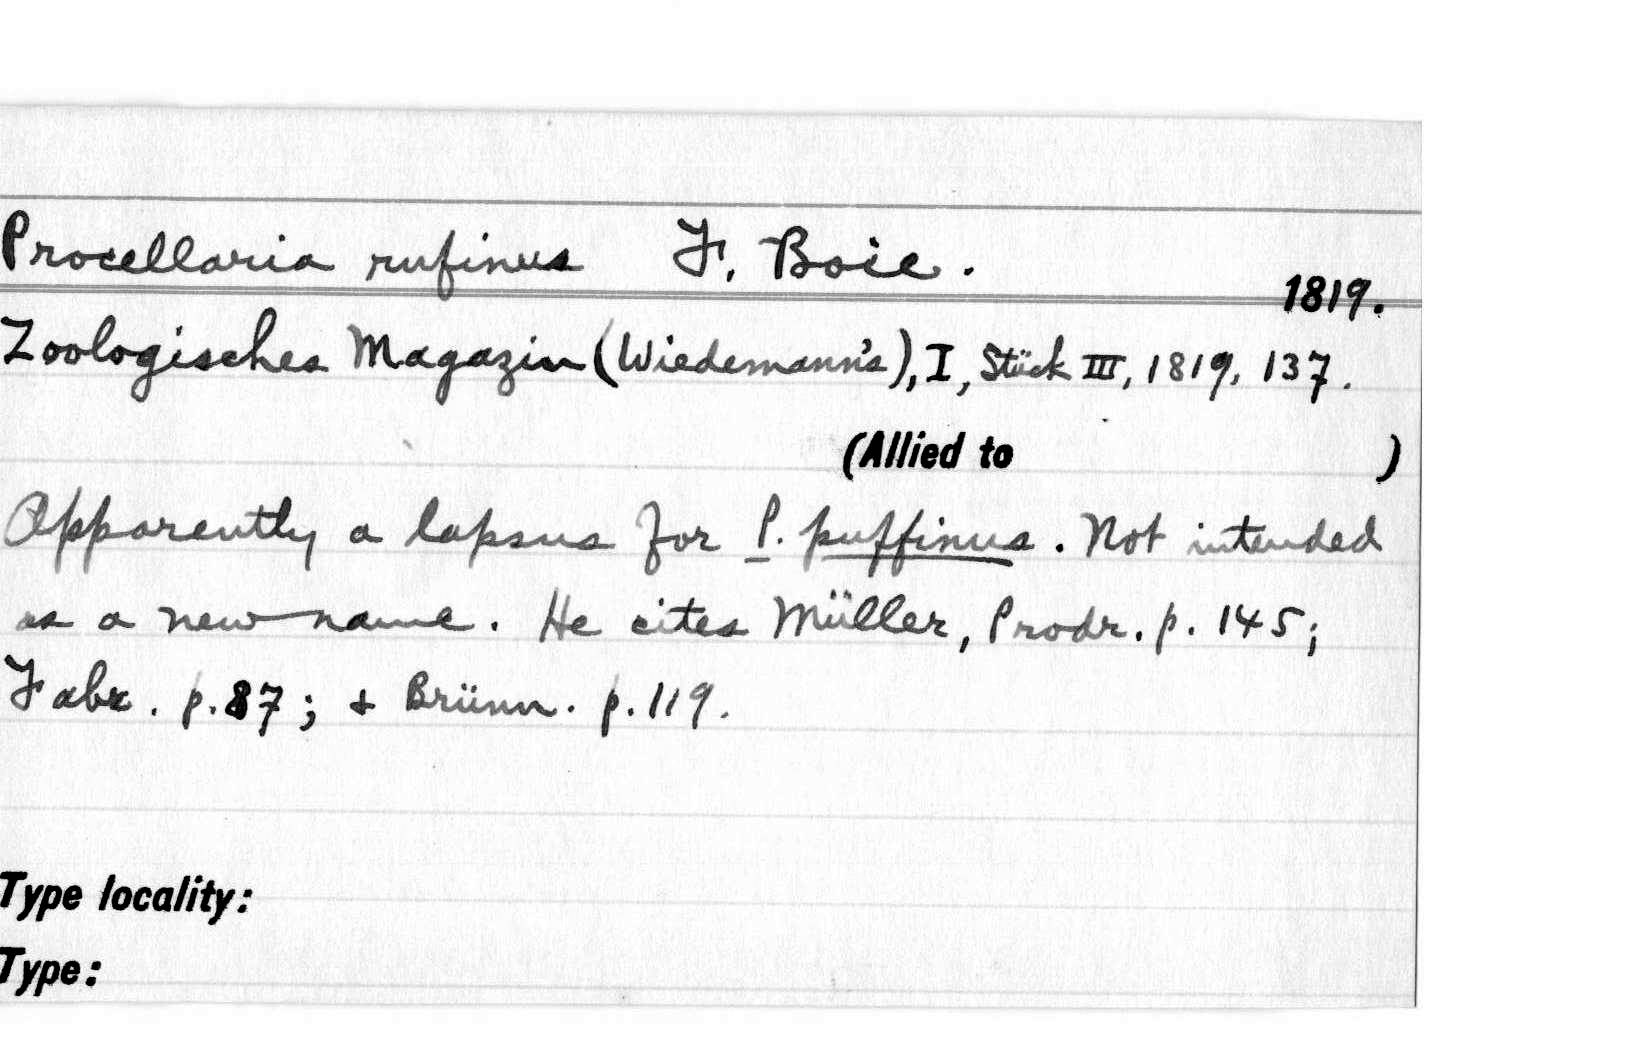 Procellaria rufinus F. Boie.
1819.
Zoologisches Magazin (Wiedemann's), I, Stück III, 1819, 137.
(Allied to )
Apparently a lapsus for P. puffinus. Not intended
as a new name. He cites Müller, Prodr. p. 145;
Fabr. p. 87; & Brünn. p. 119.
Type locality:
Type: